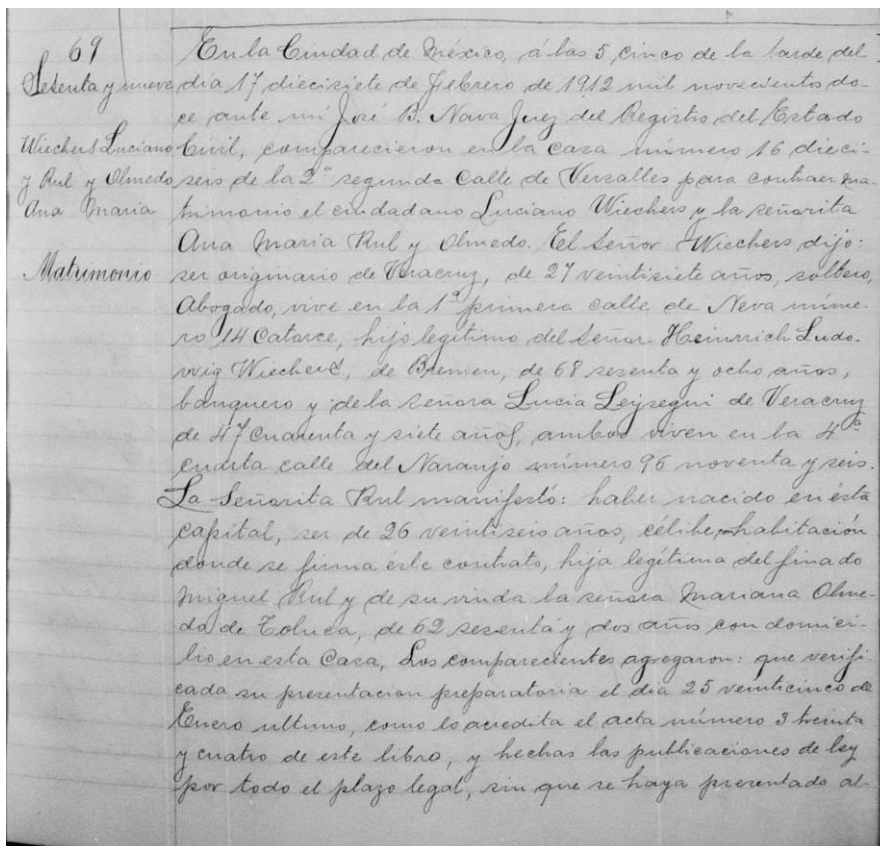 69
Sesenta y nueve
Wiechers Luciano
y Rul y Olmedo
Ana Maria
Matrimonio
En la Ciudad de México, á las 5 cinco de la tarde del
día 17 diecisiete de Febrero de 1912 mil novecientos do-
ce ante mi José B. Nava Juez del Registro del Estado
Civil, comparecieron en la casa número 16 dieci-
seis de la 2ª segunda Calle de Versalles para contraer ma-
trimonio el ciudadano Luciano Wiechers y la señorita
Ana Maria Rul y Olmedo. El Señor Wiechers dijo:
ser originario de Veracruz, de 27 veintisiete años, soltero,
Abogado, vive en la 1ª primera calle de Neva núme-
ro 14 Catorce, hijo legítimo del Señor Heinrich Ludo-
wig Wiechers, de Bremen, de 68 sesenta y ocho años,
banquero y de la Señora Lucia Leysegui de Veracruz
de 47 Cuarenta y siete años, ambos viven en la 4ª
cuarta calle del Naranjo número 96 noventa y seis.
La Señorita Rul manifestó: haber nacido en ésta
capital, ser de 26 veintiseis años, célibe, habitación
donde se firma éste contrato, hija legítima del finado
Miguel Rul y de su viuda la señora Mariana Olme-
do de Toluca, de 62 sesenta y dos años con domici-
lio en esta Casa, Los comparecientes agregaron: que verifi-
cada su presentacion preparatoria el dia 25 veinticinco de
Enero ultimo, como lo acredita el acta número 3 treinta
y cuatro de este libro, y hechas las publicaciones de ley
por todo el plazo legal, sin que se haya presentado al-